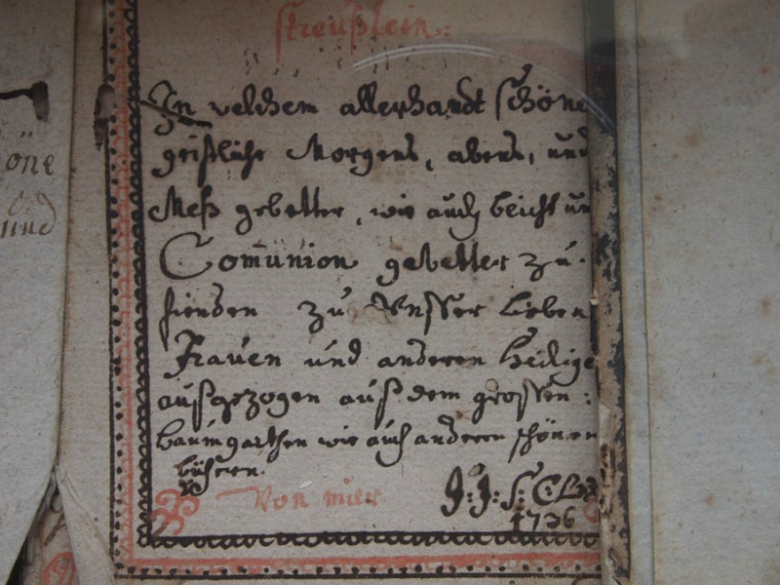 Streußlein:
In velchem allerhandt schöne
geistliche Morgens, abens, und
Meß gebetter, wie auch beicht un
Comunion gebetter zu-
finden zu Unsser lieben
Frauen und anderen Heilige
außgezogen auß dem grossen:
baumgarthen wie auch anderen schönen
bücheren.
Von mier J: J: S: C:
1736
öne
und